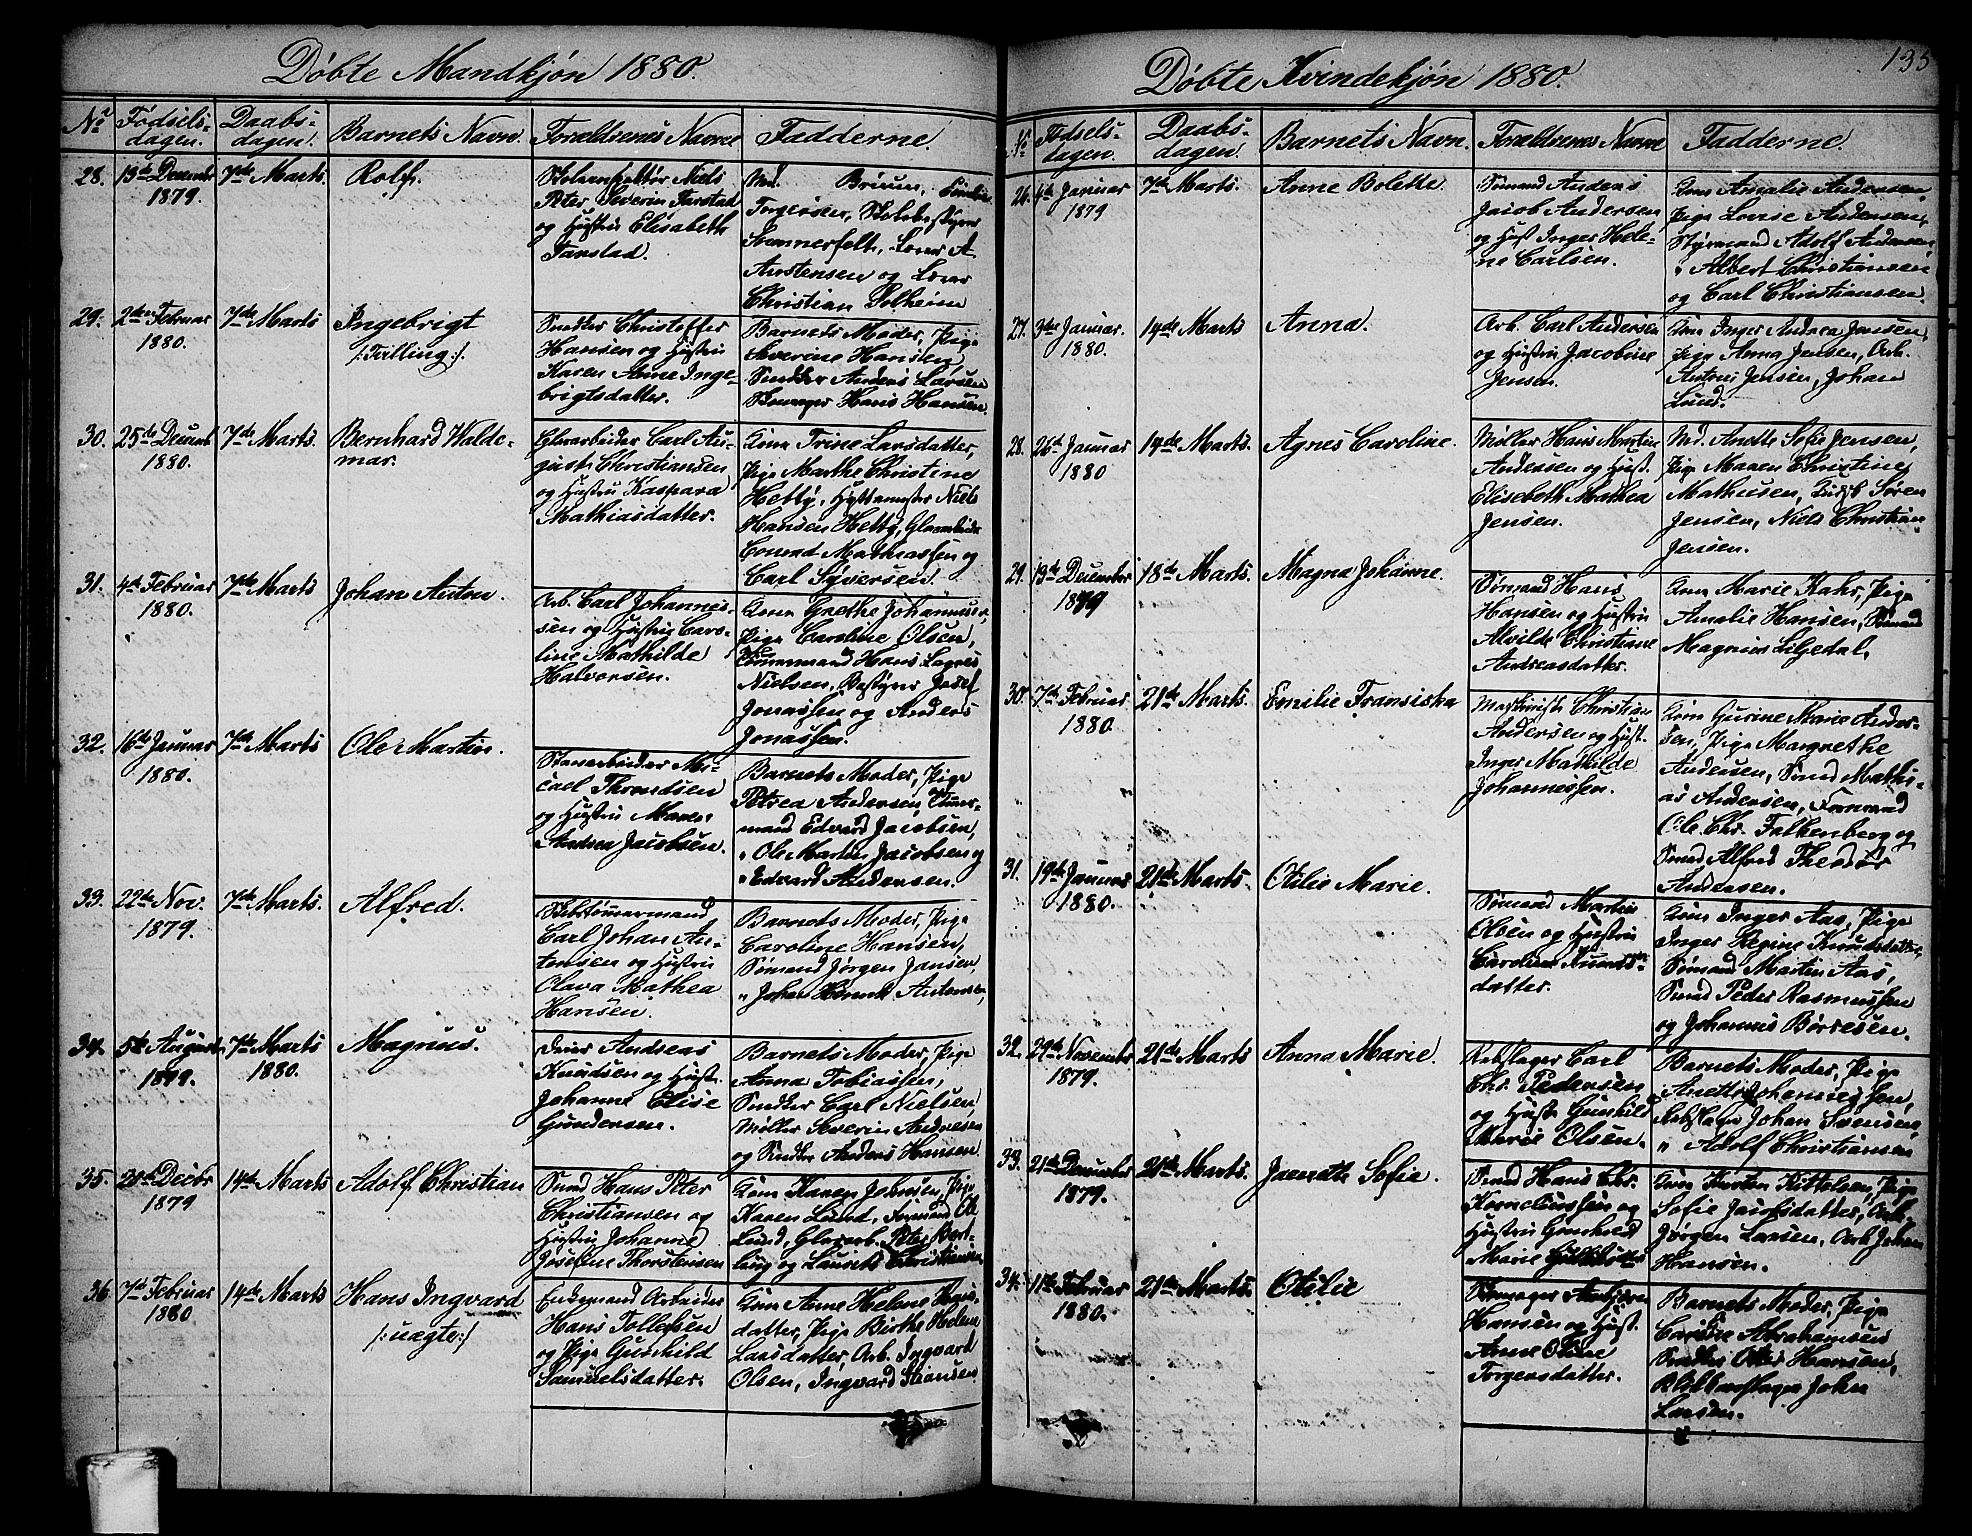 Døbte Mandkjøn 1880.
No Fødsels-dagen. Daabs-dagen. Barnets Navn. Forældrenes Navne Fadderne.
28. 13de December 1879. 7de Marts. Rolf.
Peter Severin Farstad
og Hustru Elisabeth
Farstad.
Christian Solheim
29. 2den Februar 1880. 7de Marts Ingebrigt
/:Tvilling:/
Snedker Christoffer
Hansen og Hustru
Karen Anne Inge-
brigtsdatter.
Barnets Moder, Pige
Severine Hansen,
Snedker Anders Larsen
Hans Hansen.
30. 25de Decemb 1880. 7de Marts. Bernhard Walde-
mar.
Glasarbeider Carl Au-
gust Christiansen
og Hustru Kaspara
Mathiasdatter.
Kone Trine Larsdatter,
Pige Marthe Christine
Hetty, Hyttemester Niels
Hansen Hetty, Glasarbeider
Conrad Mathiassen og
Carl Syversen.
31. 4de Februar 1880. 7de Marts Johan Anton.
Arb. Carl Johannes-
sen og Hustru Caro-
line Mathilde
Halvorsen.
Kone Grethe Johannesen,
Pige Caroline Olsen,
Tømmermand Hans
Nielsen, Bestyrer Josef
Jonassen og Anders
Jonassen.
32. 16de Januar 1880. 7de Marts Ole Martin.
Stenarbeider Mi-
cael Throndsen
og Hustru Maren
Andrea Jacobsen.
Barnets Moder, Pige
Petrea Andersen, Tømm-
mand Edvard Jacobsen,
" Ole Martin Jacobsen og
" Edvard Andersen.
33. 22de Nov. 1879. 7de Marts. Alfred.
Skibstømmermand
Carl Johan An-
tonsen og Hustru
Olava Mathea
Hansen.
Barnets Moder, Pige
Caroline Hansen,
Sømand Jørgen Jansen,
" Johan Henrik Antonsen,
34. 5te August 1879. 7de Marts 1880. Magnus.
Andreas
Knudsen og Hustr.
Johanne Elise
Gundersen.
Barnets Moder, Pige
Anna Tobiassen,
Snedker Carl Nielsen,
Møller Severin Andresen
og Snedker Anders Hansen.
35. 21de Decbr 1879 14de Marts Adolf Christian
Smed Hans Peter
Christiansen og
Hustru Johanne
Josefine Thorstensen
Kone Karen Johnsen, Pige
Karen Lund, Formand Ole
Lund, Glasarb. Peter Bert-
lang og Laurits Christiansen.
36 7de Februar 1880 14de Marts Hans Ingvard
/:uægte:/
Enkemand Arbeider
Hans Tollefsen
og Pige Gunhild
Samuelsdatter.
Kone Anne Helene Hans-
datter, Pige Birthe Helene
Larsdatter, Arb. Ingvard
Olsen, Ingvard Stiansen
Døbte Kvindekjøn 1880.
135
No Fødsels-dagen. Daabs-dagen. Barnets Navn. Forældrenes Navne Fadderne.
26. 4de Januar 1879 7de Marts. Anne Bolette.
Sømand Anders
Jacob Andersen
og Hust Inger Hele-
ne Carlsen.
Kone Amalie Andersen,
Pige Lovise Andersen,
Styrmand Adolf Andersen
" Albert Christiansen
og Carl Christiansen.
27. 3die Januar. 1880. 14de Marts Anna.
Arb. Carl Andersen
og Hustru Jacobine
Jensen.
Kone Inger Andrea Jensen,
Pige Anna Jensen, Arb.
Antus Jensen, Johan
Lund.
28. 26de Januar 1880 14de Marts. Agnes Caroline.
Møller Hans Martin
Andersen og Hust.
Elisebeth Mathea
Jensen.
Md. Anette Sofie Jensen,
Pige Maren Christine
Mathiesen, Søren
Jensen, Niels Christian
Jensen.
29. 13de December 1879 18de Marts. Magna Johanne.
Sømand Hans
Hansen og Hustru
Alvilde Christiane
Andreasdatter.
Kone Marie Kahr, Pige
Amalie Hansen, Sømand
Magnus Liljedal,
30. 7de Februar 1880. 21de Marts. Emilie Fransiska
Maskinist Christian
Andersen og Hust.
Inger Mathilde
Johannessen.
Kone Gurine Marie Ander-
sen, Pige Margrethe
Andersen, Smed Mathi-
as Andersen, Formand
Ole Chr. Falkenberg og
Smed Alfred Theodor
Andersen.
31. 19de Januar 1880. 21de Marts. Otilie Marie.
Sømand Martin
Olsen og Hustru
Caroline Knuds-
datter.
Kone Inger Aas, Pige
Inger Regine Knudsdatter,
Sømand Martin Aas,
Smed Peder Rasmussen
og Johannes Børresen.
32. 29de November 1879. 21de Marts Anna Marie.
Rebslager Carl
Chr. Pedersen
og Hustr. Gunhild
Marie Olsen.
Barnets Moder, Pige
Anette Johannessen,
Rebslager Johan Svensen,
" Adolf Christiansen
33. 21de December 1879. 21de Marts. Janette Sofie.
Smed Hans Chr.
Korneliussen og
Hustru Gunhild
Marie
Kone Kirsten Kittelsen, Pige
Sofie Jacobsdatter, Arb.
Jørgen Larsen, Arb. Johan
Hansen.
34. 11te Februar 1880. 21de Marts. Otilie
Hansen og Hust.
Anne Oline
Torgersdatter.
Barnets Moder, Pige
Caroline Abrahamsen
Snedker Otter Hansen,
Blikkenslager John
Larsen.